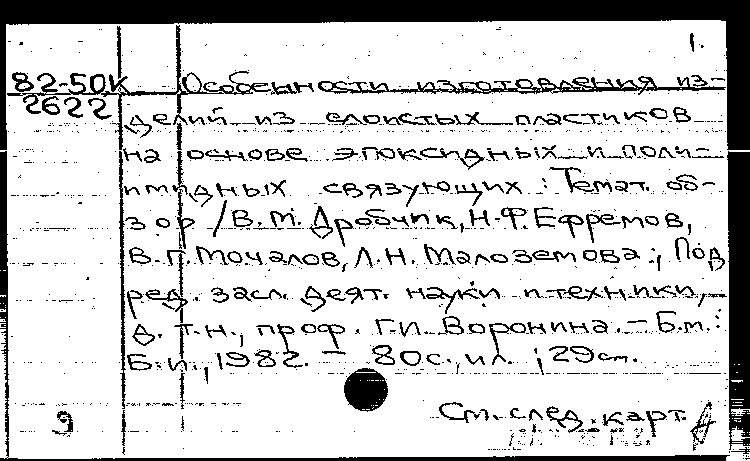 1.
82-50К Особенности изготовления из-
2622 делий из слоистых пластиков
на основе эпоксидных и поли-
имидных связующих: Темат. об-
зор / В.М. Дробчик, Н.Ф. Ефремов,
В.Г. Мочалов, Л.Н. Малоземова; Под
ред. засл. деят. науки и техники,
д. т.н., проф. Г.И. Воронина. – Б.м.:
Б.и., 1982. – 80с., ил. ; 29см.
9 См. след. карт.